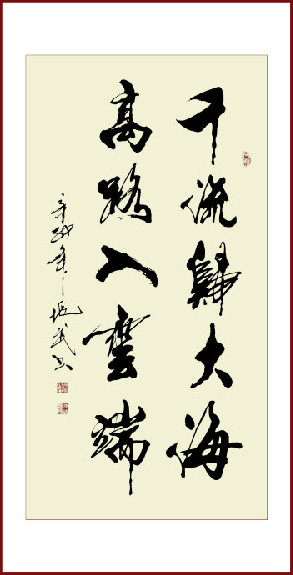 千流歸大海
高路入雲端
辛卯年